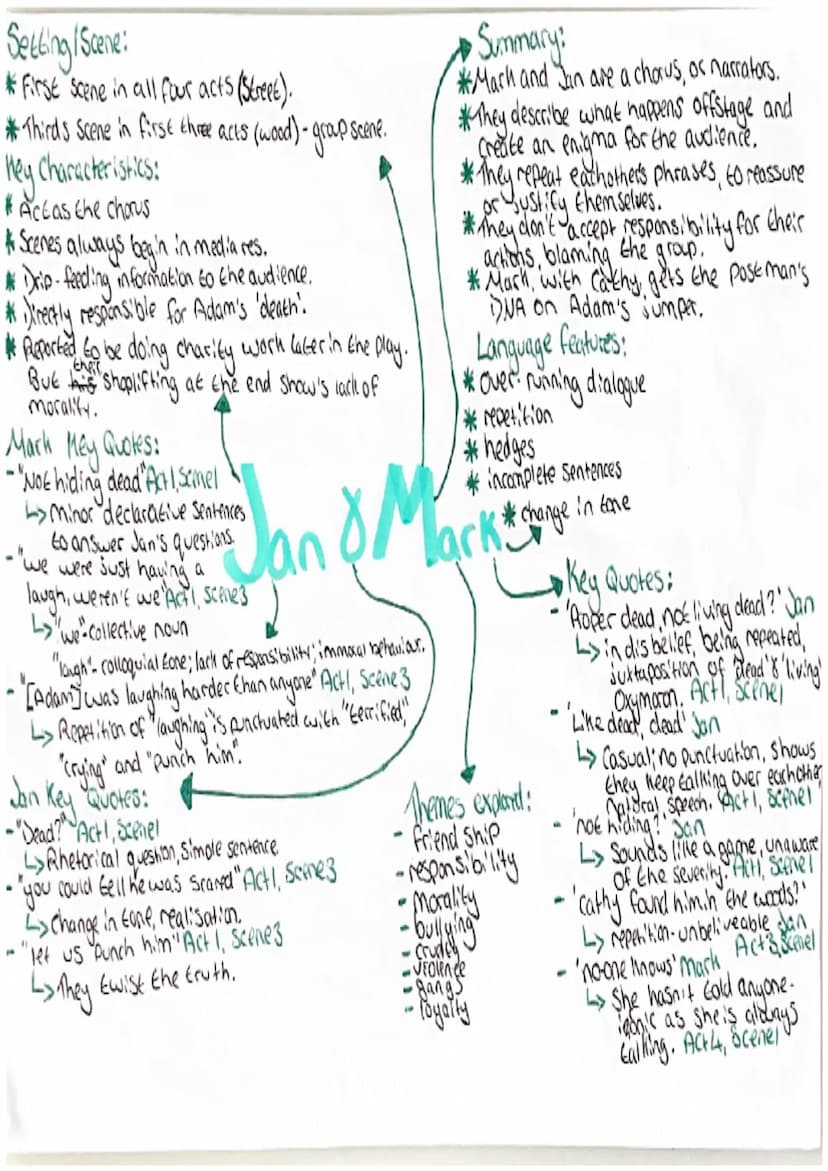 Setting/Scene:
* First scene in all four acts (Street).
* Thirds scene in first three acts (wood) - group scene.
Key Characteristics:
* Act as the chorus
* Scenes always begin in media res.
* Drip-feeding information to the audience.
* Directly responsible for Adam's 'death'.
* Reported to be doing charity work later in the play.
But their shoplifting at the end show's lack of
morality.
Mark Key Quotes:
- "Not hiding dead" Act 1, Scene 1
↳ Minor declarative sentences
to answer Jan's questions.
- "we were just having a
laugh, weren't we" Act 1, Scene 3
↳ "we" - collective noun
"laugh" - colloquial tone; lack of responsibility; immoral behaviour.
- "[Adam] was laughing harder than anyone" Act 1, Scene 3
↳ Repetition of "laughing" is punctuated with "terrified",
"crying" and "punch him".
Jan Key Quotes:
- "Dead?" Act 1, Scene 1
↳ Rhetorical question, simple sentence
- "you could tell he was scared" Act 1, Scene 3
↳ Change in tone, realisation.
- "let us punch him" Act 1, Scene 3
↳ They twist the truth.
Jan & Mark
Summary:
* Mark and Jan are a chorus, or narrators.
* They describe what happens offstage and
create an enigma for the audience.
* They repeat eachothers phrases, to reassure
or justify themselves.
* They don't accept responsibility for their
actions, blaming the group.
* Mark, with Cathy, gets the postman's
DNA on Adam's jumper.
Language features:
* over-running dialogue
* repetition
* hedges
* incomplete sentences
* change in tone
Themes explored:
- friend ship
- responsibility
- morality
- bullying
- cruelty
- violence
- gangs
- loyalty
Key Quotes:
- 'Proper dead, not living dead?' Jan
↳ in disbelief, being repeated,
juxtaposition of 'dead' & 'living'
Oxymoron. Act 1, Scene 1
- 'Like dead, dead' Jan
↳ Casual; no punctuation, shows
they keep talking over eachother,
natural speech. Act 1, Scene 1
- 'not hiding?' Jan
↳ Sounds like a game, unaware
of the severity. Act 1, Scene 1
- 'Cathy found him in the woods?'
↳ repetition - unbeliveable Jan
Act 3, Scene 1
- 'no-one knows' Mark
↳ She hasn't told anyone-
ironic as she is always
talking. Act 4, Scene 1